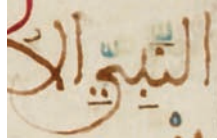 النَّبِيّ الا